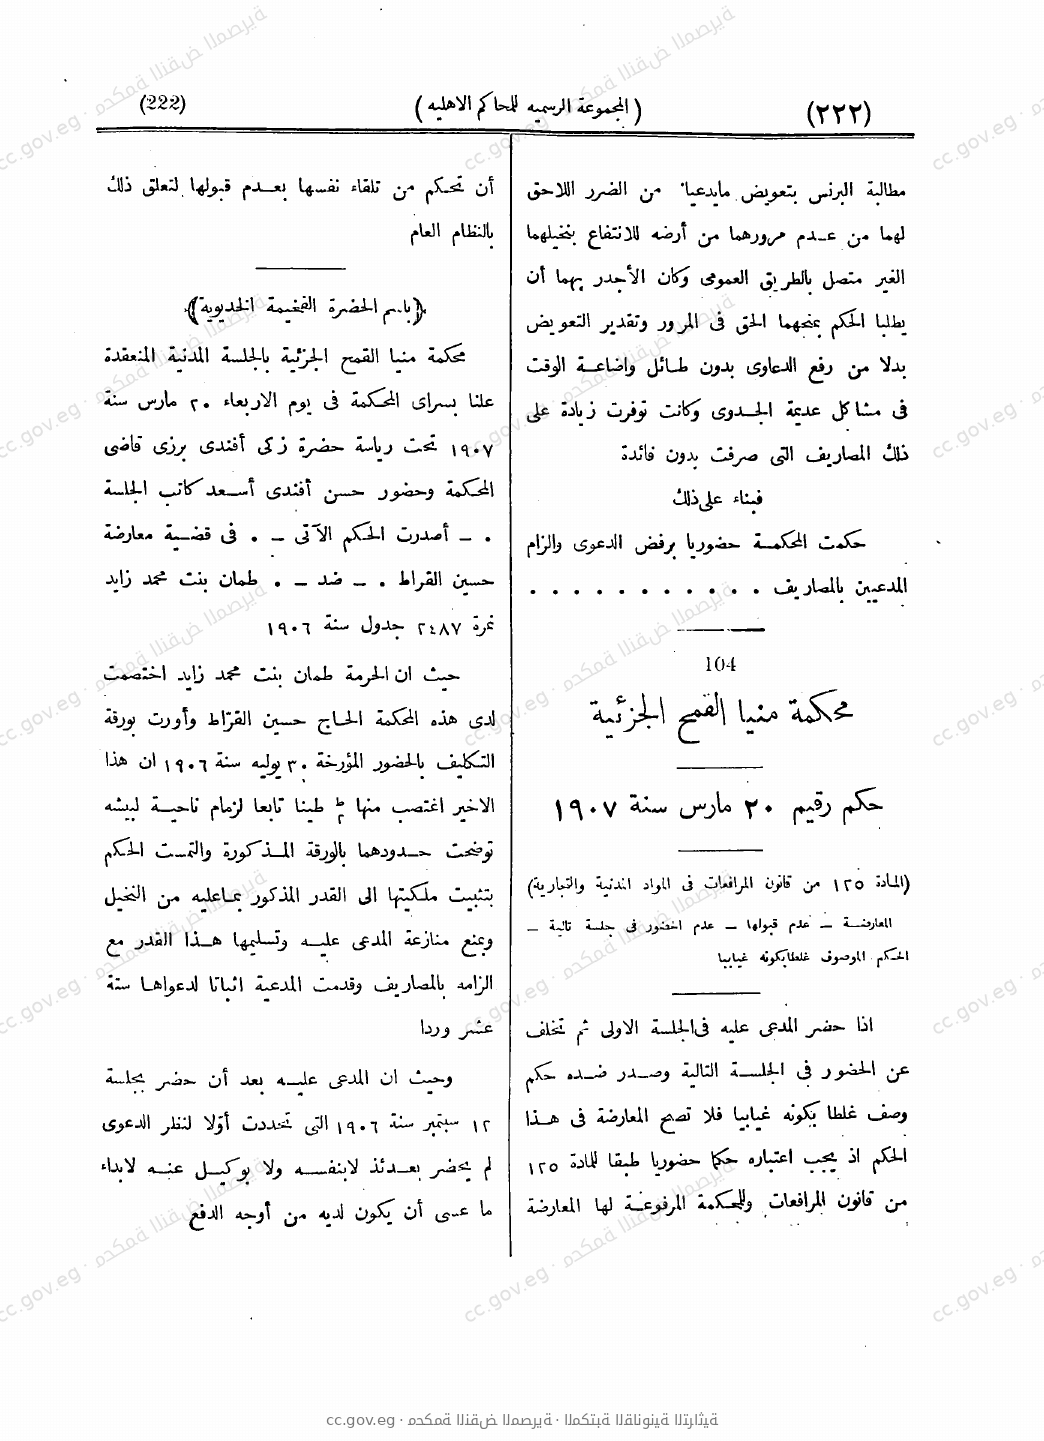 (٢٢٢)
(المجموعة الرسميه للمحاكم الاهليه)
(222)
مطالبة البرنس بتعويض مايدعيا من الضرر اللاحق
لهما من عـدم مرورهما من أرضه للانتفاع بنخيلهما
الغير متصل بالطريق العمومى وكان الأجدر بهما أن
يطلبا الحكم بمنحهما الحق فى المرور وتقدير التعويض
بدلا من رفع الدعاوى بدون طـائل واضاعـة الوقت
فى مشاكل عديمة الجـدوى وكانت توفرت زيادة على
ذلك المصاريف التى صرفت بدون فائدة
فبناء على ذلك
حكمت المحكمـة حضوريا برفض الدعوى والزام
المدعيين بالمصاريف . . . . . . . . . . .
104
محكمة منيا القمح الجزئية
حكم رقيم ٢٠ مارس سنة ١٩٠٧
(المادة ١٢٥ من قانون المرافعات فى المواد المدنية والتجارية)
المعارضـة ـ عدم قبولها ـ عدم الحضور فى جلسة تالية ـ
الحكم الموصوف غلطا بكونه غيابيا
اذا حضر المدعى عليه فى الجلسة الاولى ثم تخلف
عن الحضور فى الجلسـة التالية وصـدر ضـده حكم
وصف غلطا بكونه غيابيا فلا تصح المعارضة فى هـذا
الحكم اذ يجب اعتباره حكما حضوريا طبقا للمادة ١٢٥
من قانون المرافعات وللمحكمة المرفوعـة لها المعارضة
أن تحكم من تلقاء نفسها بعـدم قبولها لتعلق ذلك
بالنظام العام
﴿باسم الحضرة الفخيمة الخديوية﴾
محكمة منيا القمح الجزئية بالجلسة المدنية المنعقدة
علنا بسراى المحكمة فى يوم الاربعاء ٢٠ مارس سنة
١٩٠٧ تحت رياسة حضرة زكى أفندى برزى قاضى
المحكمة وحضور حسن أفندى أسـعد كاتب الجلسة
. ـ أصدرت الحكم الآتى ـ . فى قضـية معارضة
حسين القراط . ـ ضد ـ . طمان بنت محمد زايد
نمرة ٢٤٨٧ جدول سنة ١٩٠٦
حيث ان الحرمة طمان بنت محمد زايد اختصمت
لدى هذه المحكمة الحـاج حسين القرّاط وأورت بورقة
التكليف بالحضور المؤرخة ٣٠ يوليه سنة ١٩٠٦ ان هذا
الاخير اغتصب منها طينا تابعا لزمام ناحيـة لبيشه
توضحت حـدودهما بالورقة المـذكورة والتمست الحكم
بتثبيت ملكيتها الى القدر المذكور بمـاعليه من النخيل
وبمنع منازعة المدعى عليـه وتسليمها هـذا القدر مع
الزامه بالمصاريف وقدمت المدعية اثباتا لدعواهـا ستة
عشر وردا
وحيث ان المدعى عليـه بعد أن حضر بجلسة
١٢ سبتمبر سنة ١٩٠٦ التى تحددت أوّلا لنظر الدعوى
لم يحضر بعـدئذ لابنفسـه ولا بوكيـل عنـه لابداء
ما عسى أن يكون لديه من أوجه الدفع
cc.gov.eg · محكمة النقض المصرية · المكتبة القانونية التراثية